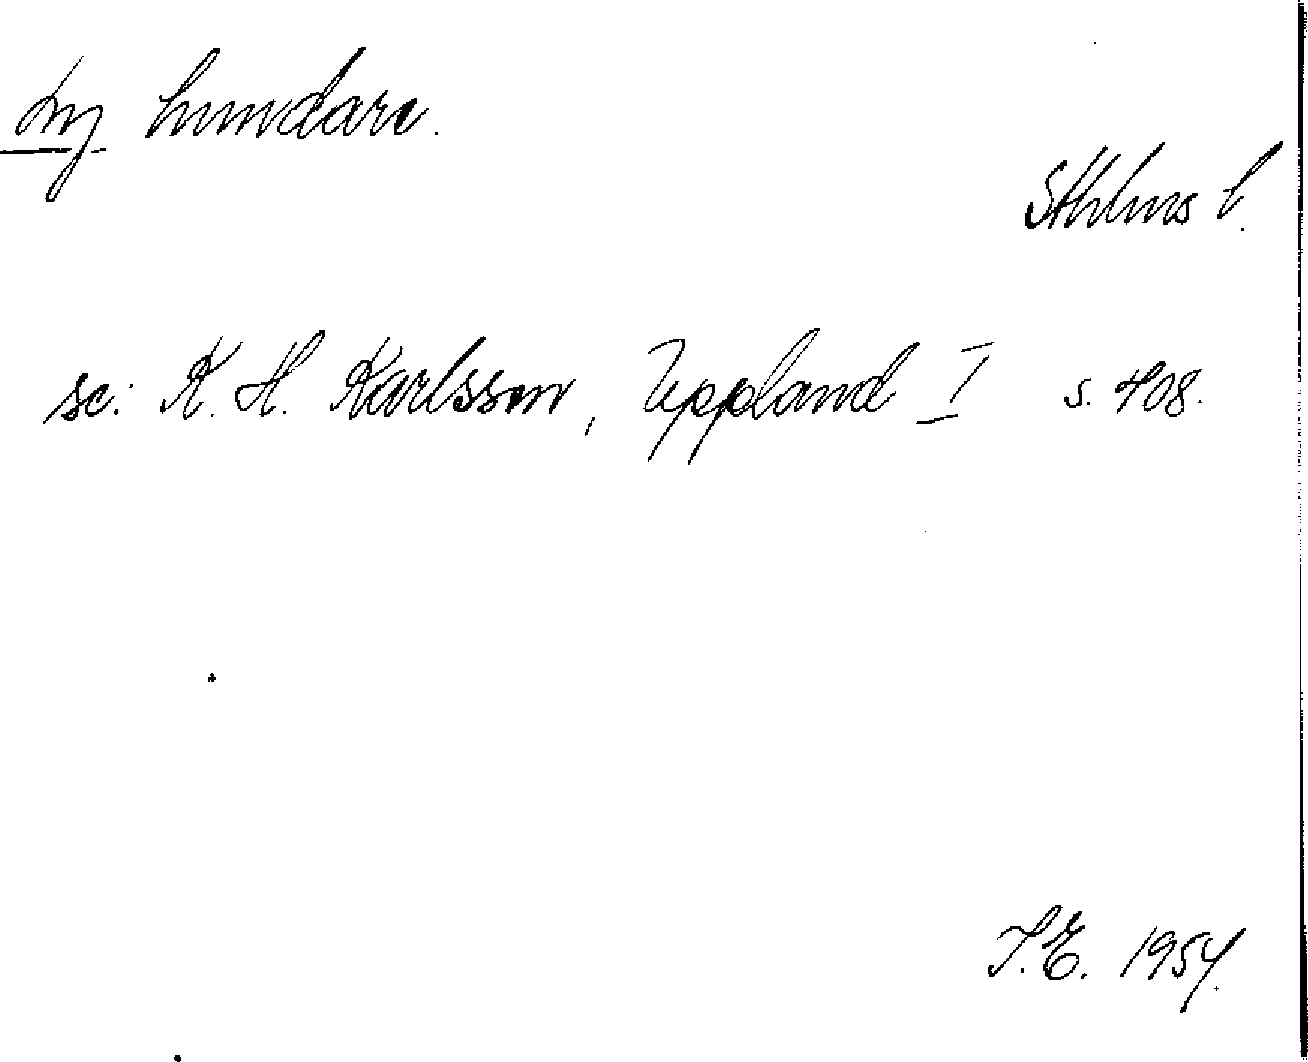 hundare.
Sthlms l.
se: K. H. Karlsson, Uppland I s. 408.
T.E. 1954.